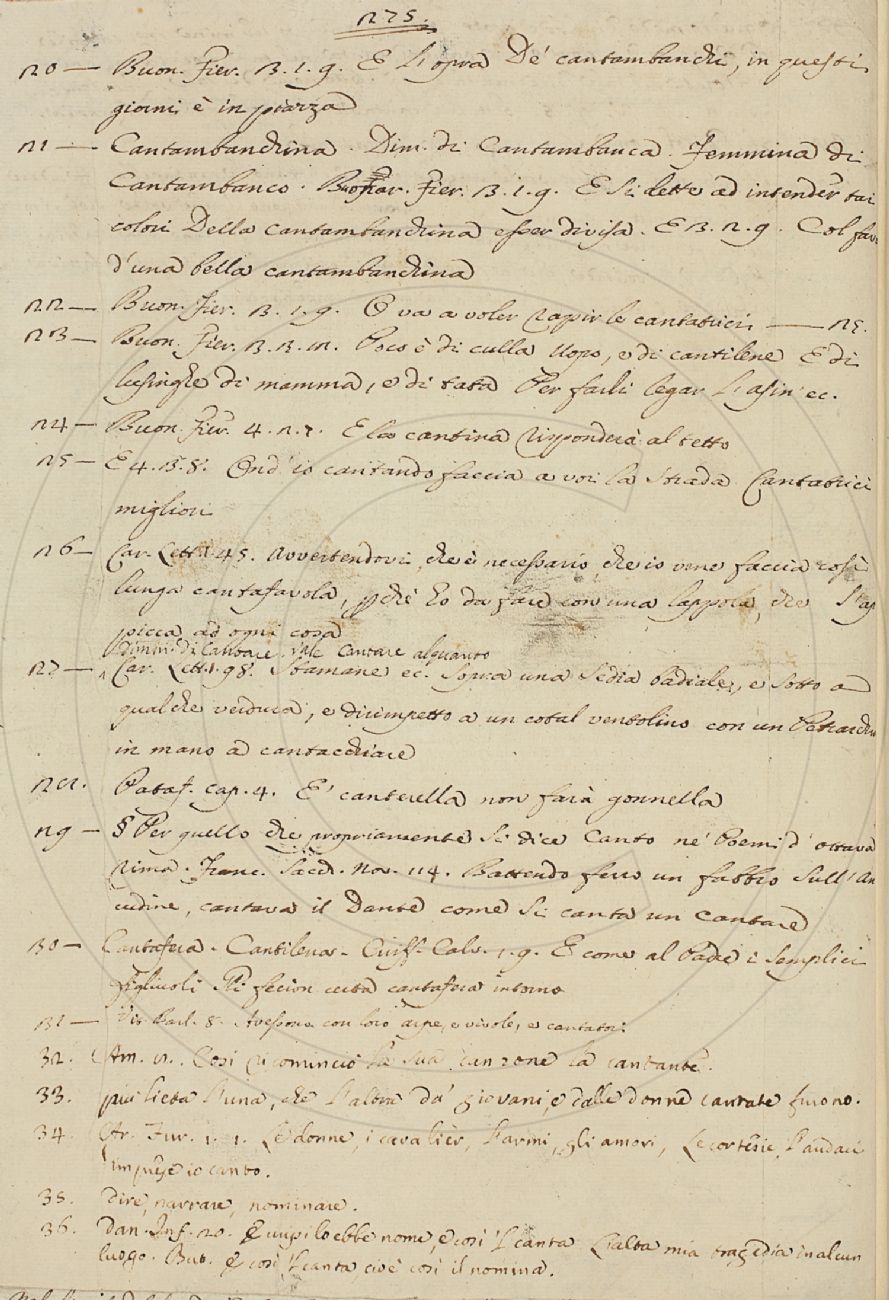 275.
20 — Buon. Fier. 3. 1. 9. E l'opra de' cantambanchi, in questi
giorni è in piazza
21 — Cantambanchina. Dim. di Cantambanca. Femmina di
Cantambanco. Fier. 3. 1. 9. E si dette ad intender tai
colori Della cantambanchina esser divisa. E 3. 2. 9. Col
d'una bella cantambanchina
22 — Buon. Fier. 3. 1. 9. O va a voler rapir le cantatrici — 25.
23 — Buon. Fier. 3. 3. Poco è di culla uopo, e di cantilene E di
lusinghe di mamma, e di tata Per farli legar l'asin' ec.
24 — Buon. Fier. 4. 2. 7. E la cantina risponderà al tetto
25 — E 4. 5. 8. Ond' io cantando faccia a voi la strada Cantatrici
migliori
26 — Car. Lett. 1. 45. Avvertendovi, che è necessario, che io vene faccia così
lunga cantafavola, pchè ho da fare con una lappola, che s'ap
picca ad ogni cosa
Dimin. di Cantare. vale Cantare alquanto
27 — Car. Lett. 1. 98. Stamane ec. sopra una sedia badiale, e sotto a
qualche verdura, e dirimpetto a un cotal ventolino con un Petrarchi
in mano a cantacchiare
28. Pataf. cap. 4. E' canterella non farà gonnella
29 — § Per quello che propriamente si dice Canto ne' Poemi d' ottava
rima. Franc. Sacch. Nov. 114. Battendo ferro un fabbro sull' An
cudine, cantava il Dante come si canta un cantare
30 — Cantafera. Cantilena. Ciriff. Calv. 1. 9. E come al Padre i semplici
figliuoli Gli fecion certa cantafera intorno
31 — Vit. Barl. 8. Avessono con loro arpe, e vivole, e cantatori
32. Am. Così ricominciò la sua canzone la cantante.
33. più lieta l'una, che l'altra da' giovani, e dalle donne cantate furono.
34. Ar. Fur. 1. 1. Le donne, i cavalier, l'armi, gli amori, Le cortesie, l'audaci
imprese io canto.
35. dire, narrare, nominare.
36. Dan. Inf. 20. Euripilo ebbe nome, e così 'l canta L'alta mia tragedia in alcun
luogo. But. E così 'l canta cioè così il nomina.